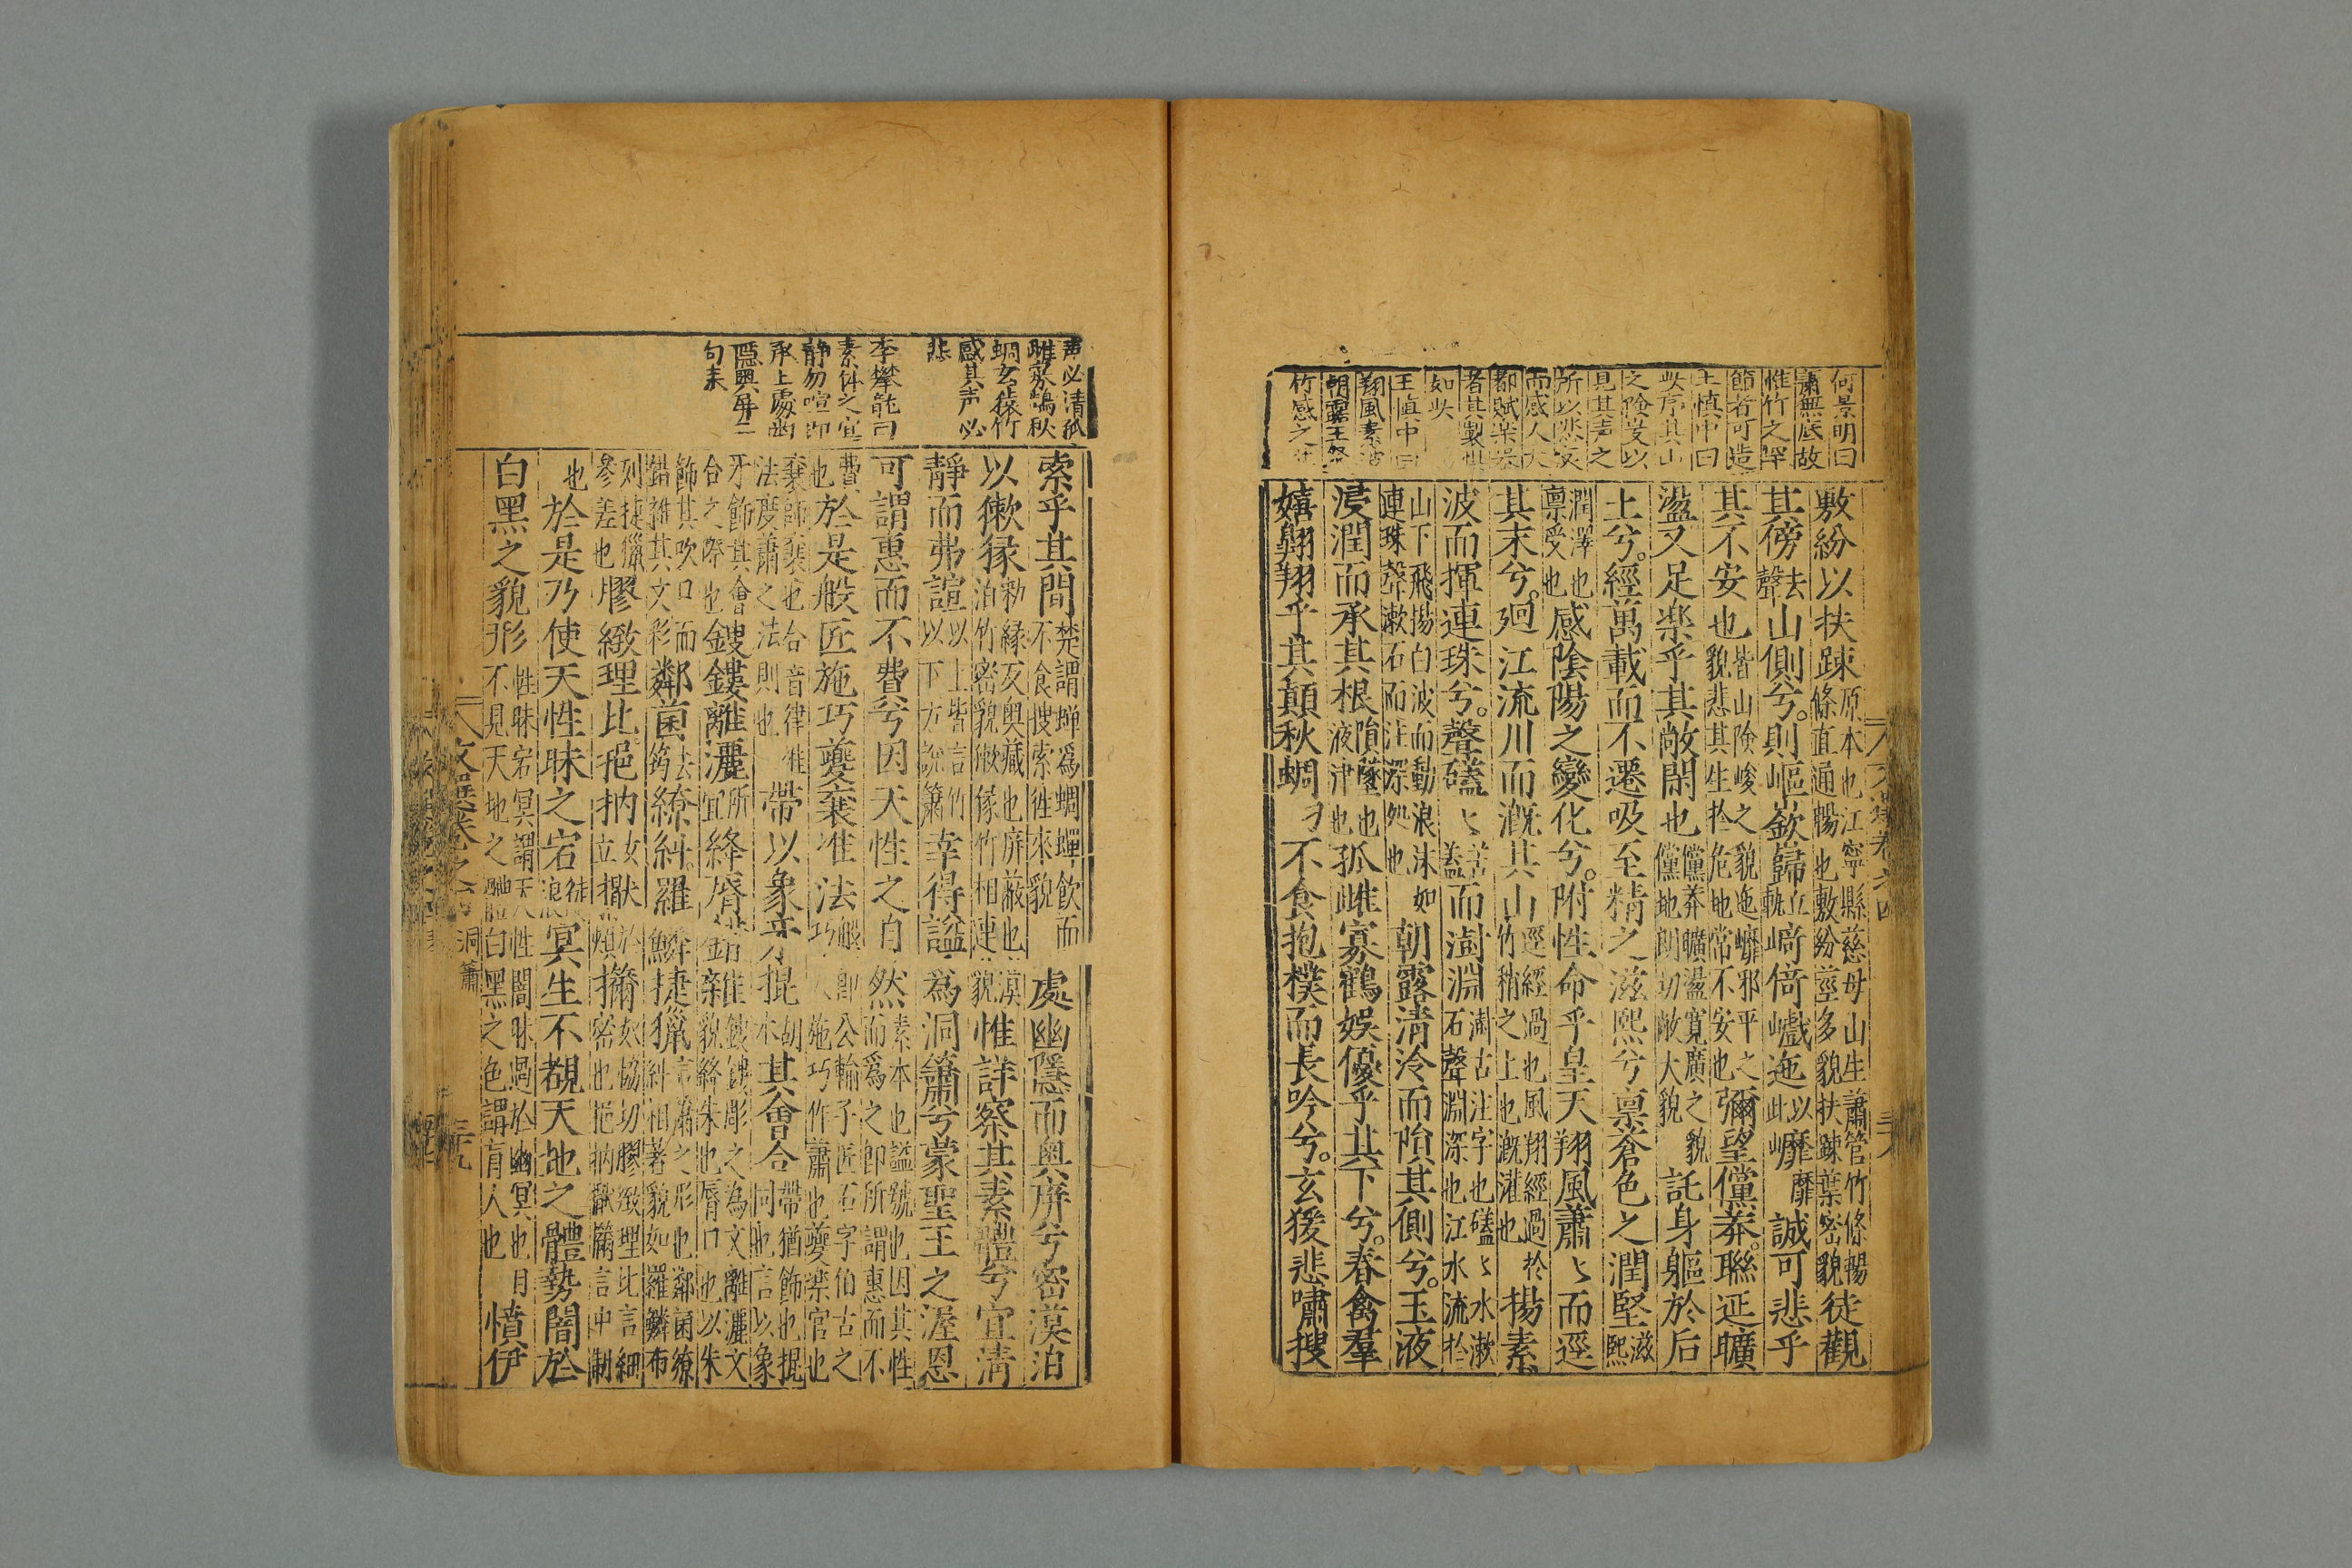 何景明曰
簫無底故
惟竹之罕
節者可造
王慎中曰
此序其山
之險峻以
見其声之
所以悲哀
而感人大
都賦楽器
者其製俱
如此
王慎中曰
翔風素波
朝露玉液
竹感之而
敷紛以扶踈
原本也江寧縣慈母山生簫管竹條暢
條直通暢也敷紛莖多貌扶踈葉密貌
徒觀
其傍
去聲
山側兮則嶇嶔巋
立軌
崎倚巇迤
以此
㠧
靡
誠可悲乎
其不安也
皆山險峻之貌迤㠧邪平之
貌悲其生於危地常不安也
彌望儻莽聯延曠
盪又足楽乎其敞閑也
儻莽曠盪寬廣之貌
儻地朗切敞大貌
託身軀於后
土兮經萬載而不遷吸至精之滋熙兮稟蒼色之潤堅
滋熙
潤澤也
稟受也
感陰陽之變化兮附性命乎皇天翔風蕭〻而逕
其末兮廻江流川而溉其山
逕經過也風翔經過於
竹稍之上也溉灌也
揚素
波而揮連珠兮聲礚〻
苦蓋
而澍淵
澍古注字也礚〻水漱
石聲淵深也江水流於
山下飛揚白波而動浪沫如
連珠聲漱石而注深処也
朝露清泠而隕其側兮玉液
浸潤而承其根
隕墜也
液津也
孤雌寡鶴娛優乎其下兮春禽羣
嬉翺翔乎其顛秋蜩
刁
不食抱樸而長吟兮玄猨悲嘯搜
声必清孤
雌寡鶴秋
蜩玄猿竹
感其声必
悲
李攀龍曰
素体之宜
静勿喧即
承上處幽
隱奥屏二
句来
索乎其間
楚謂蟬爲蜩蟬飲而
不食搜索徃來貌
處幽隱而奧庰兮密漠泊
以獙猭
勑縁反奥藏也庰蔽也漠
泊竹密貌獙猭竹相連貌
惟詳察其素體兮宜清
靜而弗諠
以上皆言竹
以下方說簫
幸得謚爲洞簫兮蒙聖王之渥恩
可謂惠而不費兮因天性之自然
素本也謚號也因其性
而爲之即所謂惠而不
費
也
於是般匠施巧夔襄准法
般即公輸子匠石字伯古之
巧人施巧作簫也夔楽官也
襄師襄也合音律惟
法度簫之法則也
帶以象牙掍
胡本
其會合
帶猶飾也掍
同也言以象
牙飾其會
合之際也
鎪鏤離灑
所宜
絳脣錯雜
鎪鏤彫之為文離灑文
貌絳朱也脣口也以朱
飾其吹口而
錯雜其文彩
鄰菌
去筠
繚糾羅鱗捷獵
言簫之形也鄰菌繚
糾相著貌如羅鱗布
列捷獵
參差也
膠緻理比挹抐
女立
擫𢹲
膠緻理比言細
密也挹抐擫𢹲言中制
也
於是乃使夫性昧之宕冥生不覩天地之體勢闇於
白黑之貌形
性昧宕冥謂天性闇昧過於幽冥也目
不見天地之體白黑之色謂盲人也
憤伊
文選卷之六
洞簫
三九